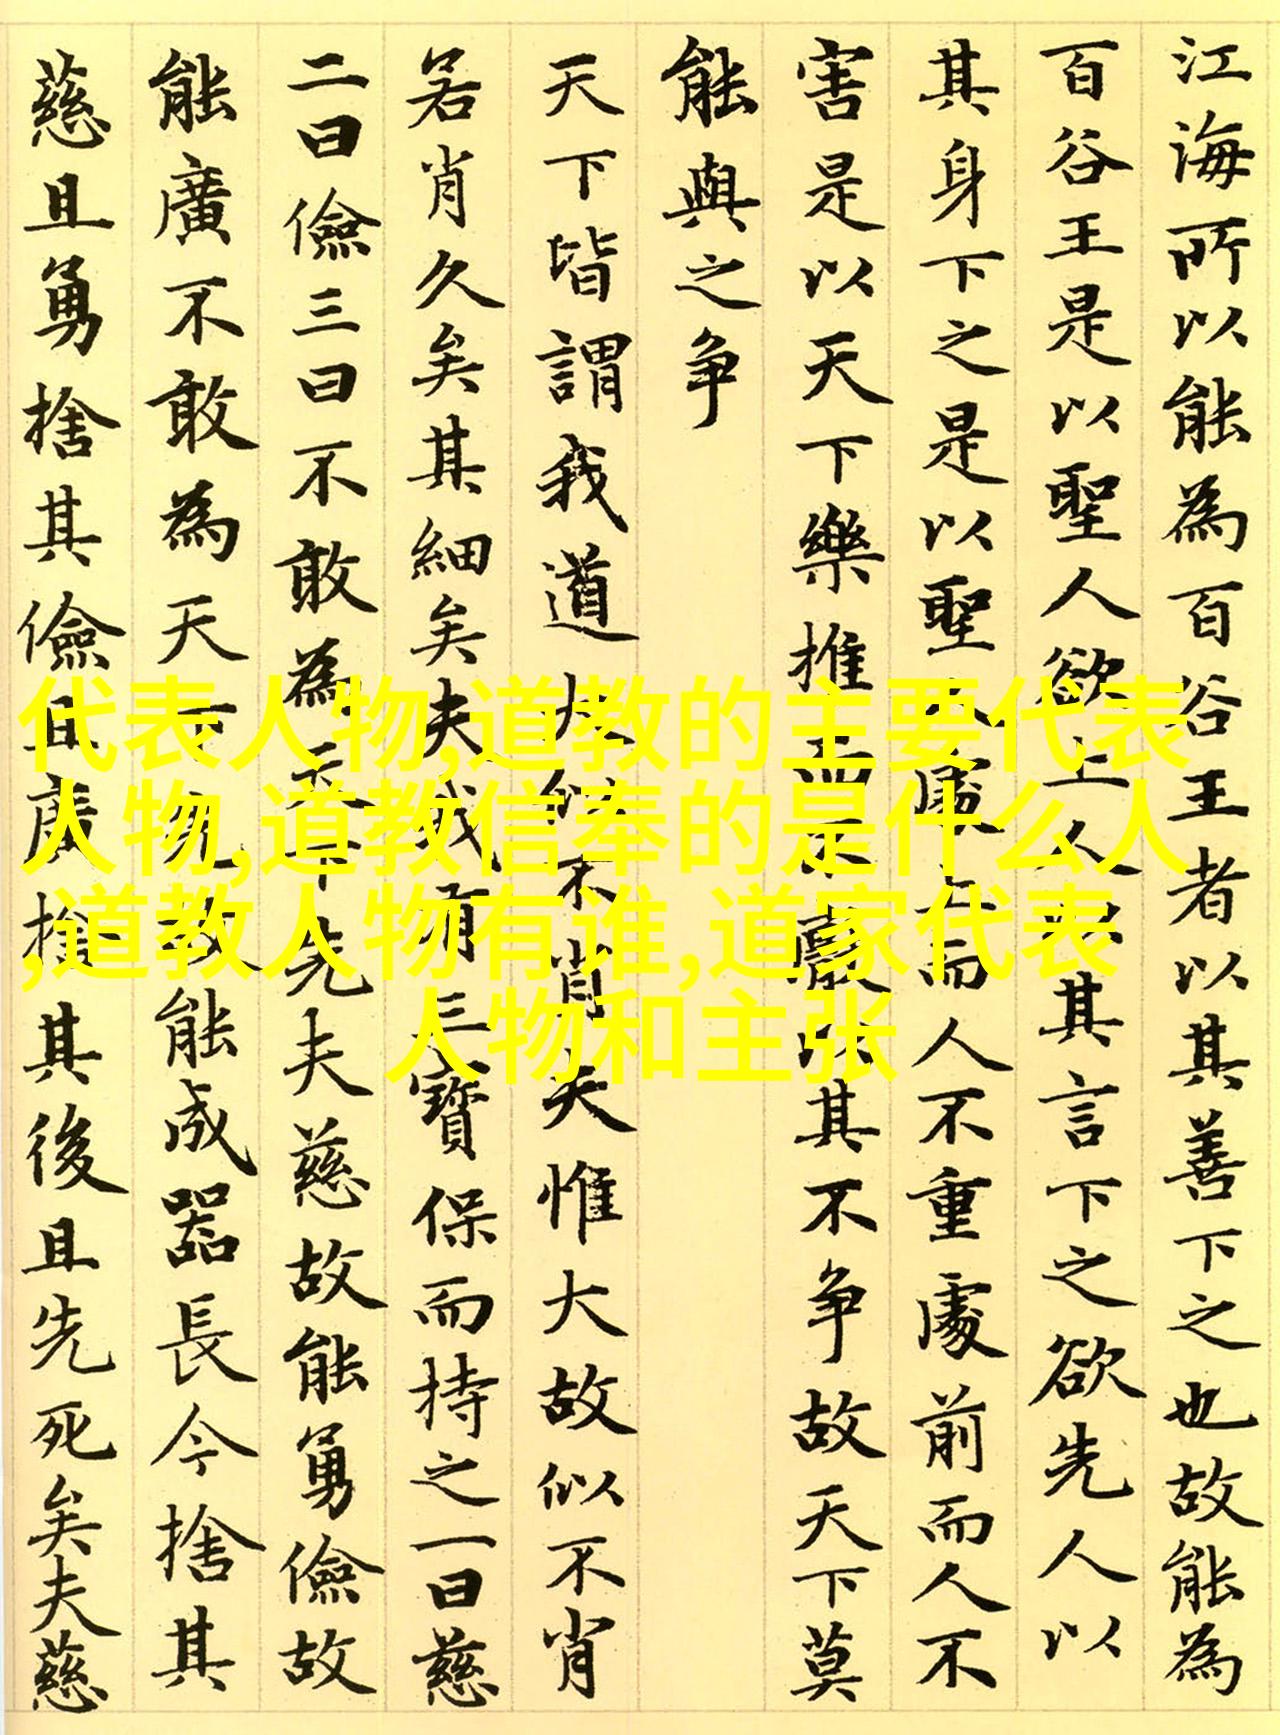 江海所以能為百谷王者以其善下之也故能為
百谷王是以聖人欲上人以其言下之欲先人以
其身下之是以聖人處上而人不重處前而人不
害是以天下樂推而不厭以其不争故天下莫
能與之争
天下皆謂我道大似不肖夫惟大故似不肖
若肖久矣其細矣夫我有三寶保而持之一曰慈
二曰儉三曰不敢為天下先夫慈故能勇儉故
能廣不敢為天下先故能成器長今捨其
慈且勇捨其儉且廣捨其後且先死矣夫慈
代表人物,道教的主要代表
人物,道教信奉的是什么人
,道教人物有谁,道家代表
人物和主张